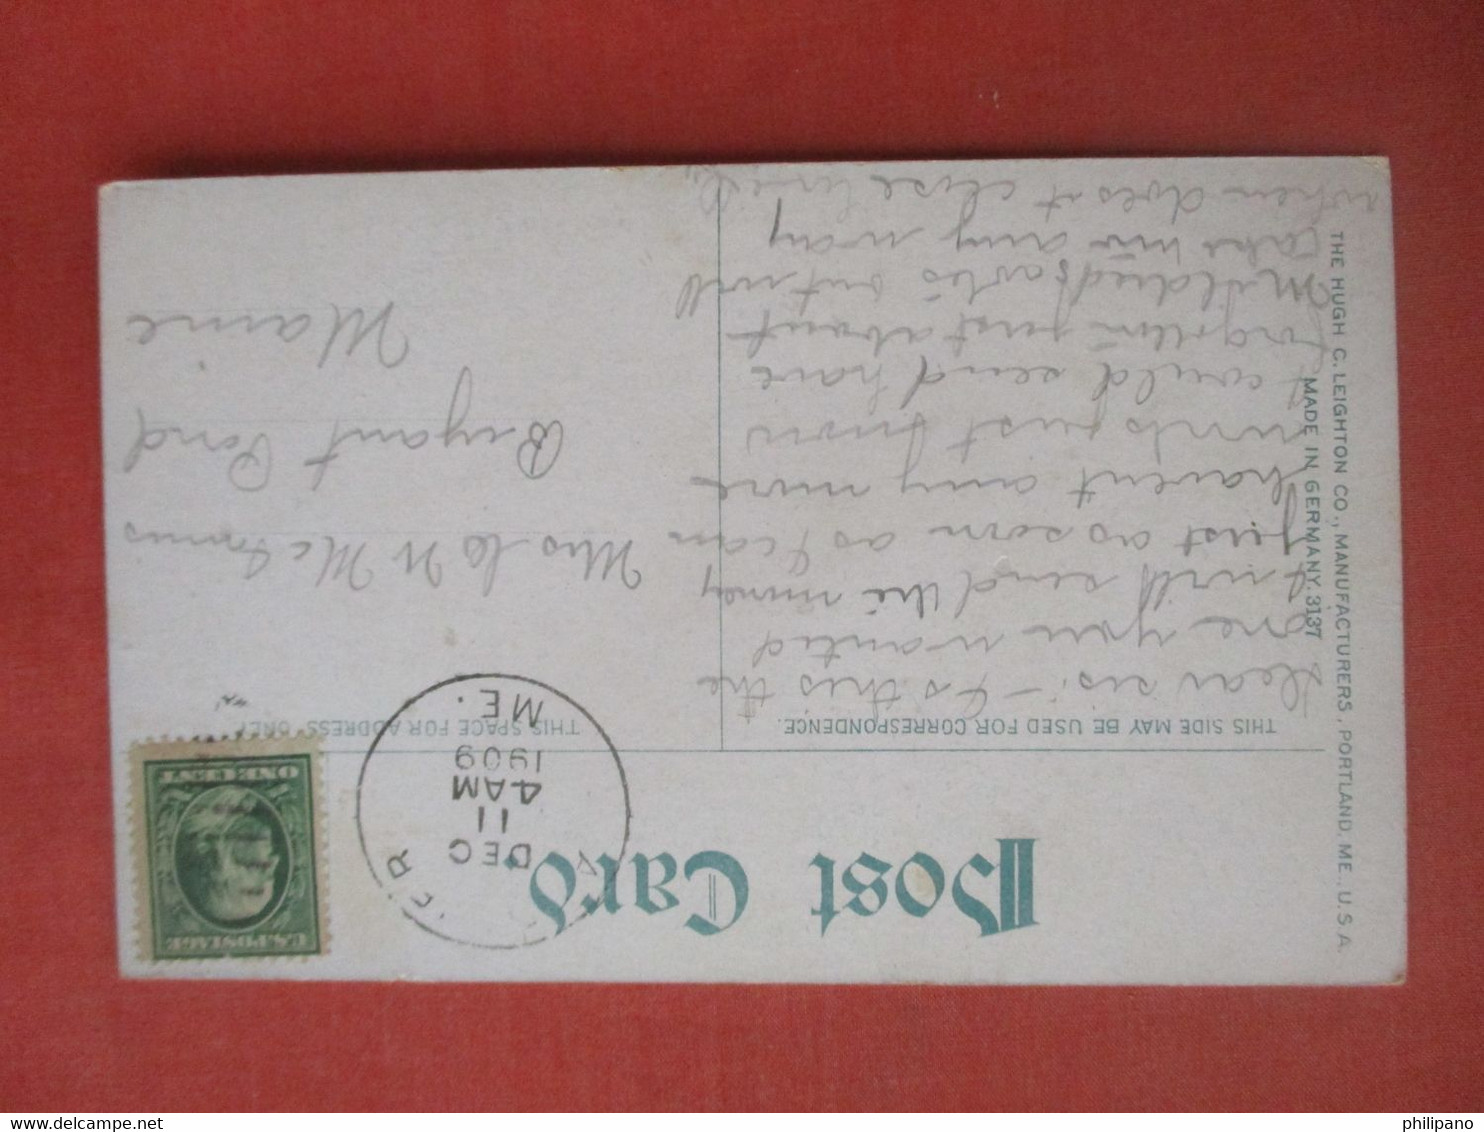 Post Card.
THIS SIDE MAY BE USED FOR CORRESPONDENCE.
THIS SPACE FOR ADDRESS ONLY
U.S. POSTAGE
ONE CENT
ER
DEC
11
4 AM
1909
ME.
Dear sis:- Is this the
one you wanted
I will send the money
just as soon as I can
havent any more
cards just now
I could send have
forgotten just about
Mildred's but will
take his any way
when does it close
Mrs W McInnis
Bryant Pond
Maine
THE HUGH C. LEIGHTON CO., MANUFACTURERS, PORTLAND, ME., U.S.A.
MADE IN GERMANY. 3137
philipano